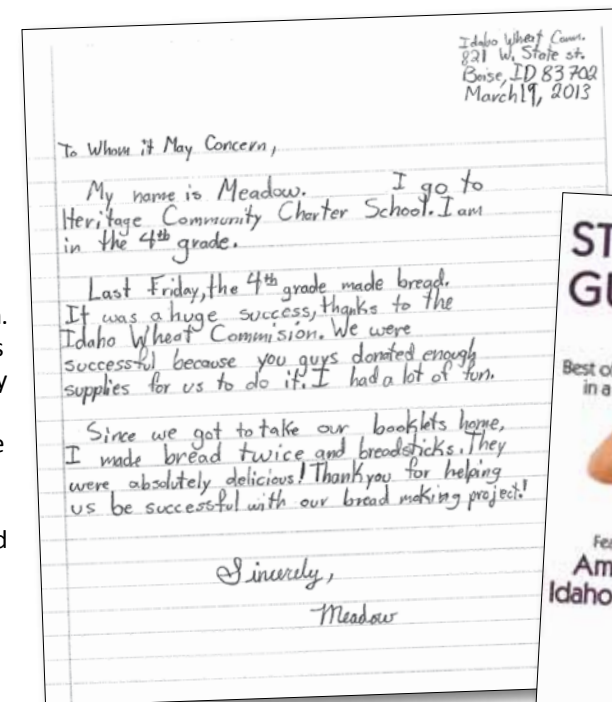 Idaho Wheat Comm.
821 W. State st.
Boise, ID 83702
March 19, 2013
To Whom it May Concern,
My name is Meadow. I go to
Heritage Community Charter School. I am
in the 4th grade.
Last Friday, the 4th grade made bread.
It was a huge success, thanks to the
Idaho Wheat Commision. We were
successful because you guys donated enough
supplies for us to do it. I had a lot of fun.
Since we got to take our booklets home,
I made bread twice and breadsticks. They
were absolutely delicious! Thank you for helping
us be successful with our bread making project!
Sincerely,
Meadow
ST
GU
Best of
in a
Fea
Am
Idaho